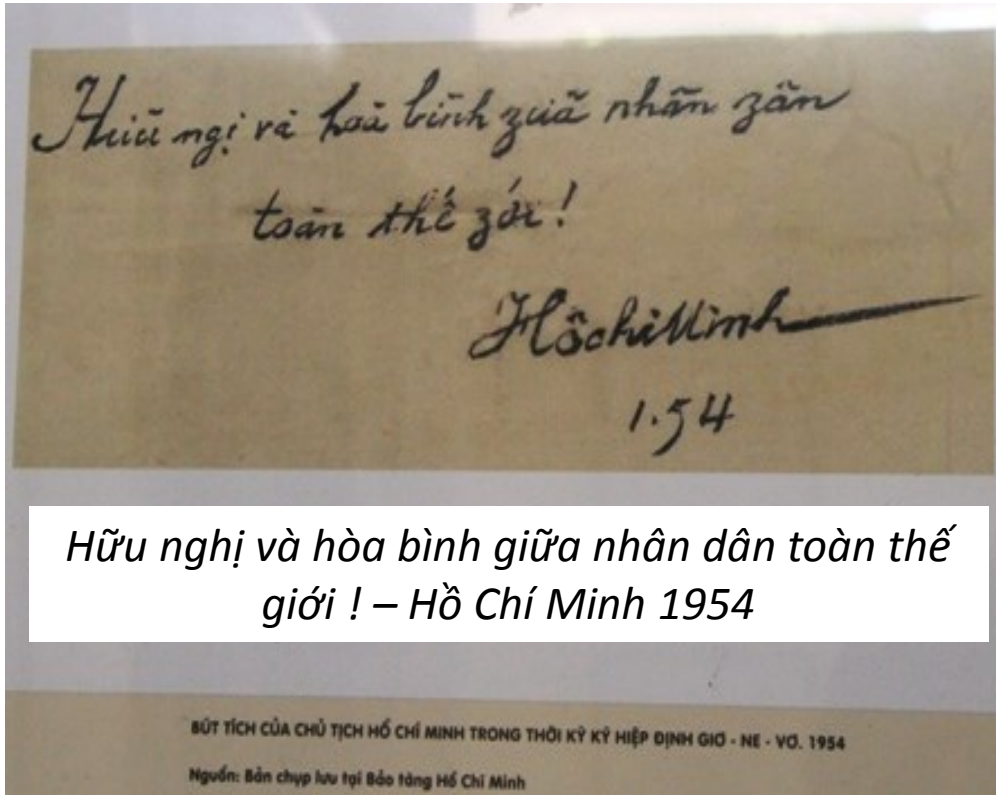 Hữu ngị và hoà bình zữa nhân zân
toàn thế zới!
Hồ Chí Minh
1.54
Hữu nghị và hòa bình giữa nhân dân toàn thế
giới ! – Hồ Chí Minh 1954
BÚT TÍCH CỦA CHỦ TỊCH HỒ CHÍ MINH TRONG THỜI KỲ KÝ HIỆP ĐỊNH GIƠ - NE - VƠ. 1954
Nguồn: Bản chụp lưu tại Bảo tàng Hồ Chí Minh